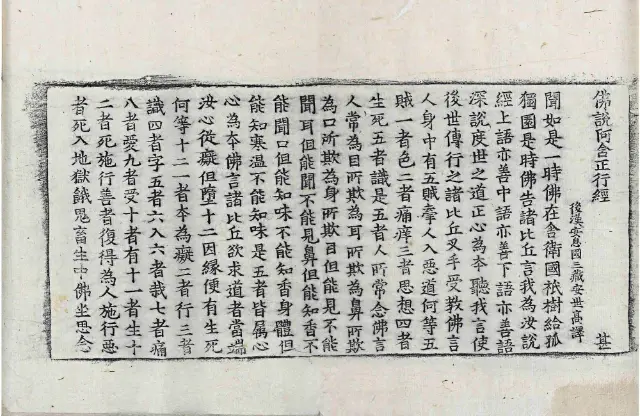 佛說阿含正行經 甚
後漢安息國三藏安世高譯
聞如是一時佛在舍衛國祇樹給孤
獨園是時佛告諸比丘言我為汝說
經上語亦善中語亦善下語亦善語
深說度世之道正心為本聽我言使
後世傳行之諸比丘叉手受教佛言
人身中有五賊牽人入惡道何等五
賊一者色二者痛痒三者思想四者
生死五者識是五者人所常念佛言
人常為目所欺為耳所欺為鼻所欺
為口所欺為身所欺目但能見不能
聞耳但能聞不能見鼻但能知香不
能聞口但能知味不能知香身體但
能知寒溫不能知味是五者皆屬心
心為本佛言諸比丘欲求道者當端
汝心從癡但墮十二因緣便有生死
何等十二一者本為癡二者行三者
識四者字五者六入六者栽七者痛
八者愛九者受十者有十一者生十
二者死施行善者復得為人施行惡
者死入地獄餓鬼畜生中佛坐思念